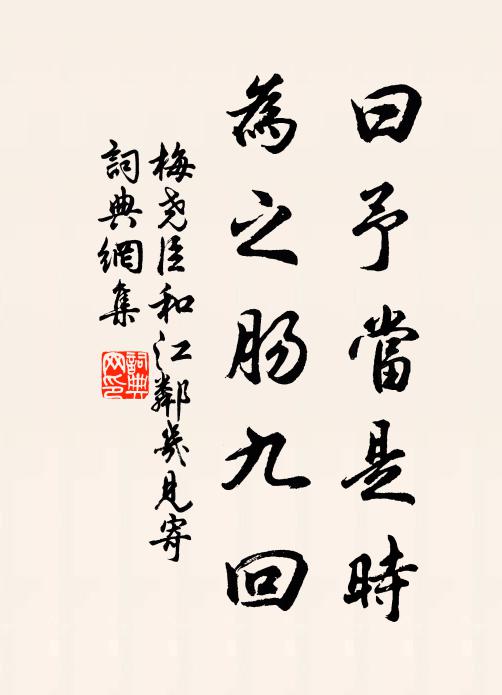 曰予當是時
為之肠九回
梅尧臣和江鄰幾見寄
詞典網集
詞典
网印